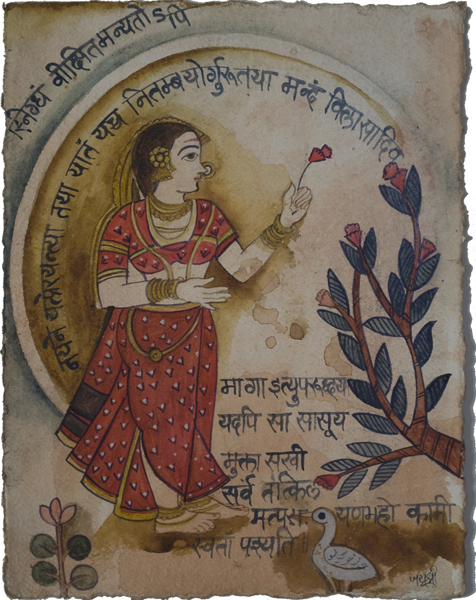 स्निग्धं वीक्षितमन्यतोऽपि
नयने यत्प्रेरयन्त्या तया यातं यच्च नितम्बयोर्गुरूतया मन्दं विलासादिव
मा गा इत्युपरुद्धया
यदपि सा सासूय
मुक्ता सखी
सर्व तत्किल
मत्परा यणमहो कामी
स्वतां पश्यति ॥